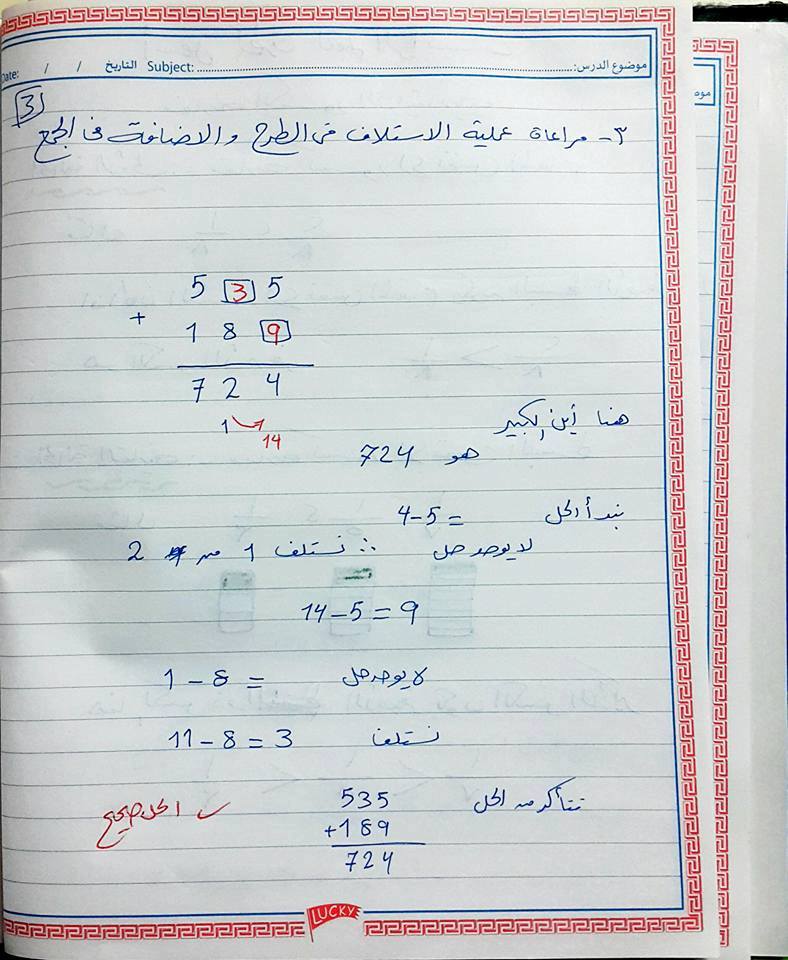 موضوع الدرس: Subject: التاريخ / / Date:
3
٣- مراعاة عملية الاستلاف فى الطرح والاضافة فى الجمع
5 3 5
+
1 8 9
7 2 4
1 14
هنا أين الكبير
هو 724
نبدأ الحل = 4-5
لا يوجد حل ∴ نستلف 1 من 2
14-5=9
لا يوجد حل 1-8=
نستلف 11-8=3
نتأكد من الحل 535
+189
724
الحل صحيح
LUCKY